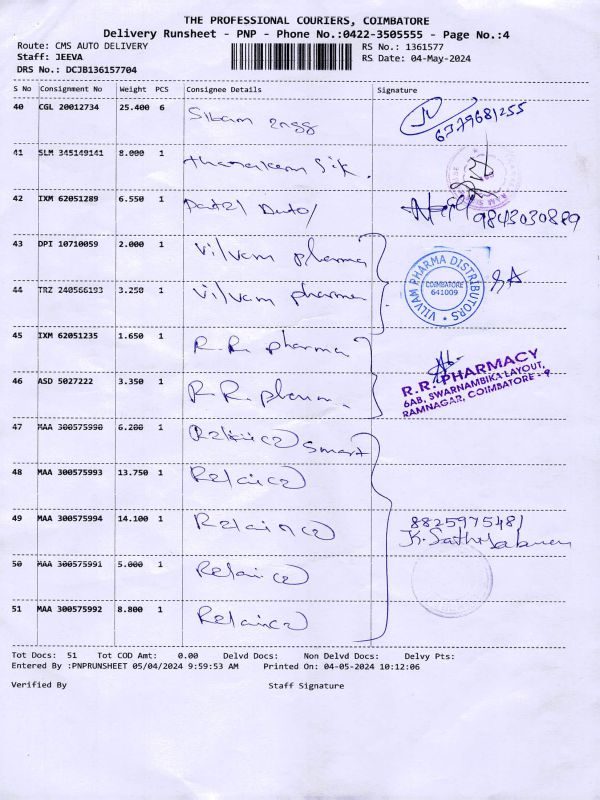 THE PROFESSIONAL COURIERS, COIMBATORE
Delivery Runsheet - PNP - Phone No.:0422-3505555 - Page No.:4
Route: CMS AUTO DELIVERY RS No.: 1361577
Staff: JEEVA RS Date: 04-May-2024
DRS No.: DCJB136157704
S No Consignment No Weight PCS Consignee Details Signature
40 CGL 20012734 25.400 6 6379681255
41 SLM 345149141 8.000 1
42 IXM 62051289 6.550 1 9843030889
43 DPI 10710059 2.000 1 Vilvam pharma
VILVAM PHARMA DISTRIBUTORS
COIMBATORE
641009
44 TRZ 240566193 3.250 1 Vilvam pharma
45 IXM 62051235 1.650 1 R.R. pharma
46 ASD 5027222 3.350 1 R.R.
R.R. PHARMACY
6AB, SWARNAMBIKA LAYOUT,
RAMNAGAR, COIMBATORE - 9
47 MAA 300575990 6.200 1 Smart
48 MAA 300575993 13.750 1
49 MAA 300575994 14.100 1 8825975481
50 MAA 300575991 5.000 1
51 MAA 300575992 8.800 1
Tot Docs: 51 Tot COD Amt: 0.00 Delvd Docs: Non Delvd Docs: Delvy Pts:
Entered By :PNPRUNSHEET 05/04/2024 9:59:53 AM Printed On: 04-05-2024 10:12:06
Verified By Staff Signature